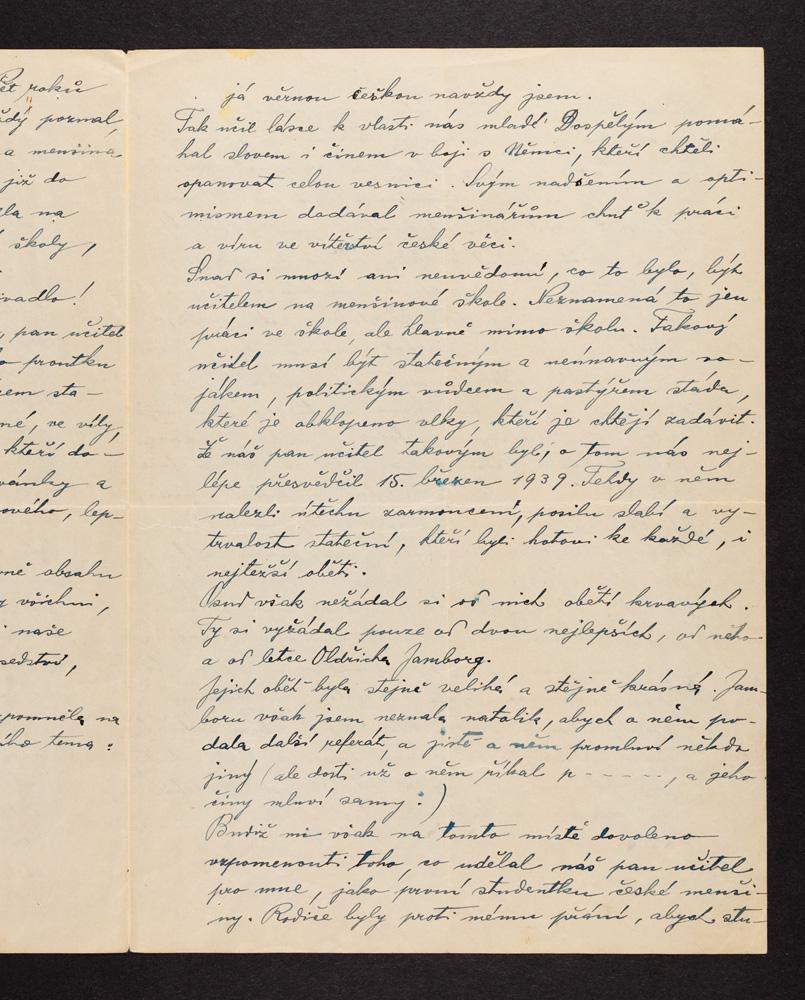 Pět roků
ždý poznal,
a menšina
již do
la na
školy,
ivadlo!
, pan učitel
o proutku
em sta-
né, ve víly,
kteří do-
vánky a
ového, lep-
ně obsahu
y všichni,
i naše
sedství,
zpomněla na
ého tema:
já věrnou češkou navždy jsem.
Tak učil lásce k vlasti nás mladé. Dospělým pomá-
hal slovem i činem v boji s Němci, kteří chtěli
opanovat celou vesnici. Svým nadšením a opti-
mismem dodával menšinářům chuť k práci
a víru ve vítězství české věci.
Snad si mnozí ani neuvědomí, co to bylo, být
učitelem na menšinové škole. Neznamená to jen
práci ve škole, ale hlavně mimo školu. Takový
učitel musí být statečným a neúnavným vo-
jákem, politickým vůdcem a pastýřem stáda,
které je obklopeno vlky, kteří je chtějí zadávit.
Že náš pan učitel takovým byl, o tom nás nej-
lépe přesvědčil 15. březen 1939. Tehdy v něm
nalezli útěchu zarmoucení, posilu slabí a vy-
trvalost stateční, kteří byli hotovi ke každé, i
nejtežší oběti.
Osud však nežádal si od nich obětí krvavých.
Ty si vyžádal pouze od dvou nejlepších, od něho
a od letce Oldřicha Jamborg.
Jejich oběť byla stejně veliká a stejně krásná. Jam-
boru však jsem neznala natolik, abych o něm po-
dala další referát, a jistě o něm promluví někdo
jiný (ale dosti už o něm říkal p- - - - - -, a jeho
činy mluví samy.)
Budiž mi však na tomto místě dovoleno
vzpomenouti toho, co udělal náš pan učitel
pro mne, jako první studentku české menši-
ny. Rodiče byly proti mému přání, abych stu-